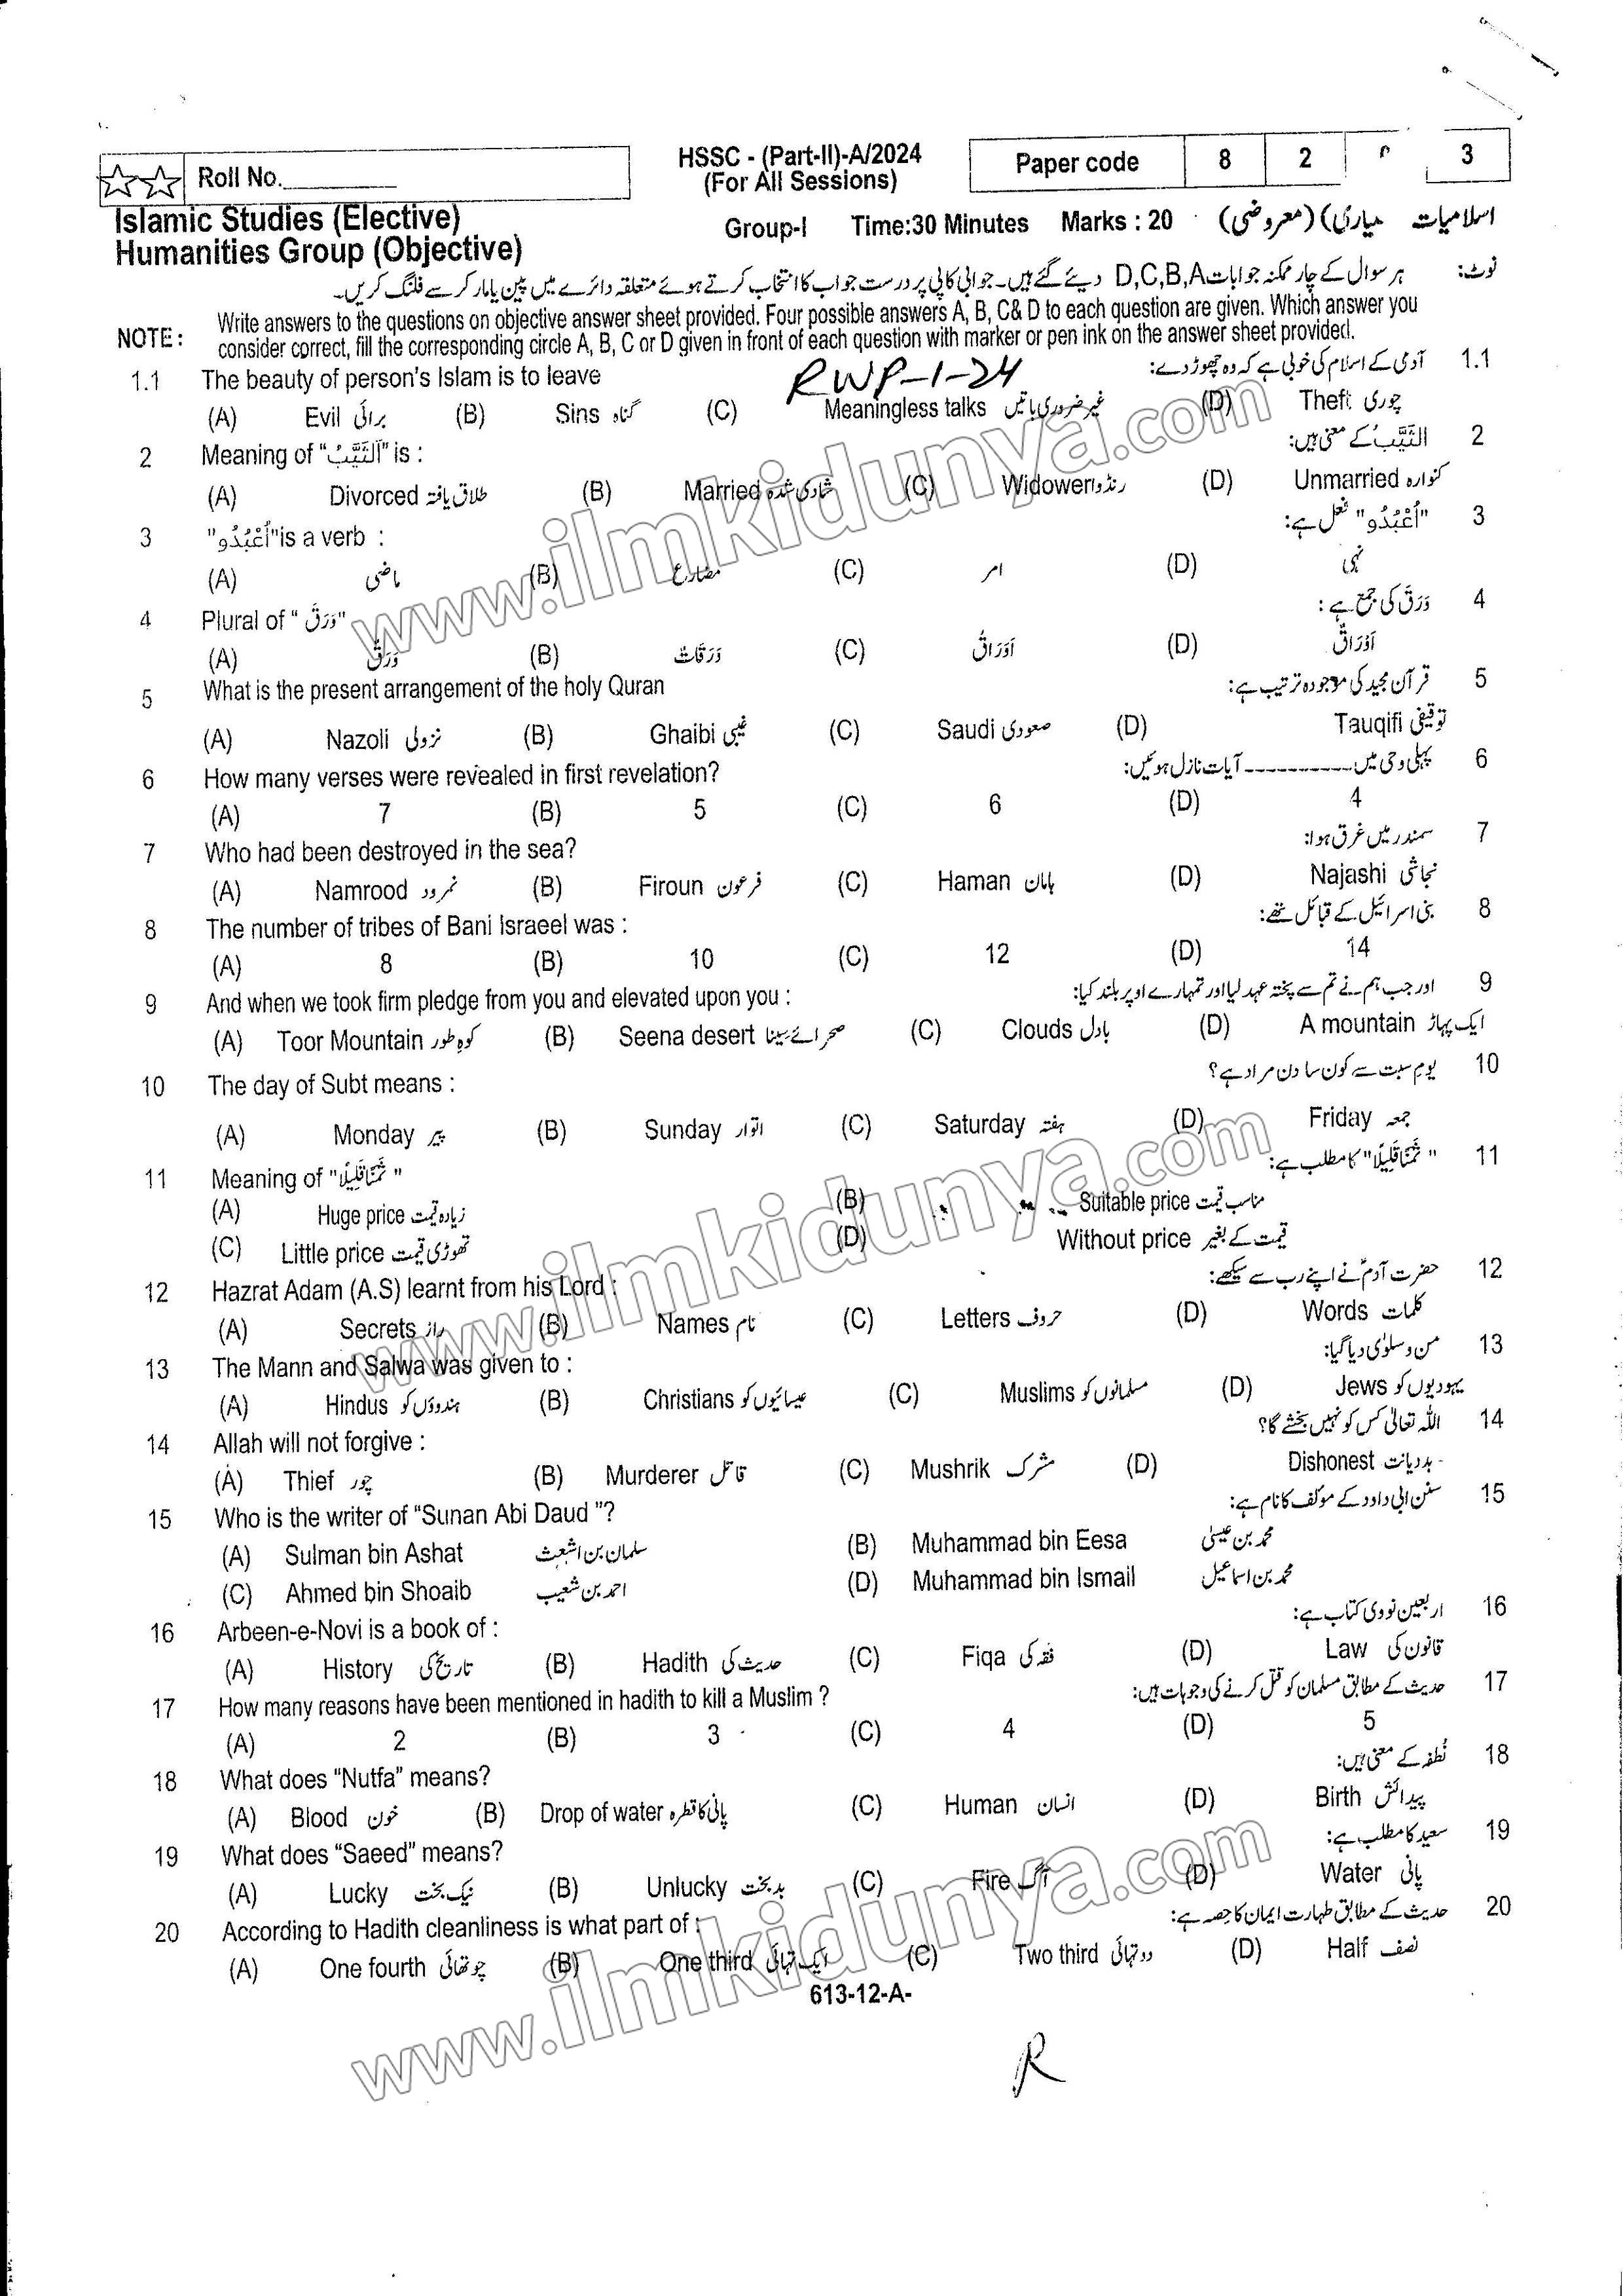 HSSC - (Part-II)-A/2024
(For All Sessions)
Paper code 8 2 3
Roll No.
Islamic Studies (Elective)
Humanities Group (Objective)
Group-I Time:30 Minutes Marks : 20 (معروضی) اسلامیات
نوٹ: ہر سوال کے چار ممکنہ جوابات D,C,B,A دیئے گئے ہیں۔ جوابی کاپی پر درست جواب کا انتخاب کرتے ہوئے متعلقہ دائرے میں پین یا مارکر سے فلنگ کریں۔
NOTE: Write answers to the questions on objective answer sheet provided. Four possible answers A, B, C& D to each question are given. Which answer you
consider correct, fill the corresponding circle A, B, C or D given in front of each question with marker or pen ink on the answer sheet provided.
RWP-1-24
1.1 The beauty of person's Islam is to leave آدمی کے اسلام کی خوبی ہے کہ وہ چھوڑ دے: 1.1
(A) Evil برائی (B) Sins گناہ (C) Meaningless talks غیر ضروری باتیں (D) Theft چوری
2 Meaning of "اَلثَّيِّبُ" is : الثَّيِّبُ کے معنی ہیں: 2
(A) Divorced طلاق یافتہ (B) Married شادی شدہ (C) Widower رنڈوا (D) Unmarried کنوارہ
3 "اُعْبُدُو" is a verb : "اُعْبُدُو" فعل ہے: 3
(A) ماضی (B) مضارع (C) امر (D) نہی
4 Plural of " وَرَقَ" وَرَقَ کی جمع ہے : 4
(A) وَرَقٌ (B) وَرَقَاتٌ (C) اَوْرَاقُ (D) اَوْرَاقٌ
5 What is the present arrangement of the holy Quran قرآن مجید کی موجودہ ترتیب ہے: 5
(A) Nazoli نزولی (B) Ghaibi غیبی (C) Saudi صعودی (D) Tauqifi توقیفی
6 How many verses were revealed in first revelation? پہلی وحی میں---------- آیات نازل ہوئیں: 6
(A) 7 (B) 5 (C) 6 (D) 4
7 Who had been destroyed in the sea? سمندر میں غرق ہوا: 7
(A) Namrood نمرود (B) Firoun فرعون (C) Haman ہامان (D) Najashi نجاشی
8 The number of tribes of Bani Israeel was : بنی اسرائیل کے قبائل تھے: 8
(A) 8 (B) 10 (C) 12 (D) 14
9 And when we took firm pledge from you and elevated upon you : اور جب ہم نے تم سے پختہ عہد لیا اور تمہارے اوپر بلند کیا: 9
(A) Toor Mountain کوہِ طور (B) Seena desert صحرائے سینا (C) Clouds بادل (D) A mountain ایک پہاڑ
10 The day of Subt means : یومِ سبت سے کون سا دن مراد ہے؟ 10
(A) Monday پیر (B) Sunday اتوار (C) Saturday ہفتہ (D) Friday جمعہ
11 Meaning of "ثَمَنًا قَلِيْلًا " " ثَمَنًا قَلِيْلًا" کا مطلب ہے: 11
(A) Huge price زیادہ قیمت (B) Suitable price مناسب قیمت
(C) Little price تھوڑی قیمت (D) Without price قیمت کے بغیر
12 Hazrat Adam (A.S) learnt from his Lord : حضرت آدمؑ نے اپنے رب سے سیکھے: 12
(A) Secrets راز (B) Names نام (C) Letters حروف (D) Words کلمات
13 The Mann and Salwa was given to : من و سلوٰی دیا گیا: 13
(A) Hindus ہندوؤں کو (B) Christians عیسائیوں کو (C) Muslims مسلمانوں کو (D) Jews یہودیوں کو
14 Allah will not forgive : اللہ تعالیٰ کس کو نہیں بخشے گا؟ 14
(A) Thief چور (B) Murderer قاتل (C) Mushrik مشرک (D) Dishonest بددیانت
15 Who is the writer of "Sunan Abi Daud "? سنن ابی داود کے مولف کا نام ہے: 15
(A) Sulman bin Ashat سلمان بن اشعث (B) Muhammad bin Eesa محمد بن عیسیٰ
(C) Ahmed bin Shoaib احمد بن شعیب (D) Muhammad bin Ismail محمد بن اسماعیل
16 Arbeen-e-Novi is a book of : اربعین نووی کتاب ہے: 16
(A) History تاریخ کی (B) Hadith حدیث کی (C) Fiqa فقہ کی (D) Law قانون کی
17 How many reasons have been mentioned in hadith to kill a Muslim ? حدیث کے مطابق مسلمان کو قتل کرنے کی وجوہات ہیں: 17
(A) 2 (B) 3 (C) 4 (D) 5
18 What does "Nutfa" means? نُطفہ کے معنی ہیں: 18
(A) Blood خون (B) Drop of water پانی کا قطرہ (C) Human انسان (D) Birth پیدائش
19 What does "Saeed" means? سعید کا مطلب ہے: 19
(A) Lucky نیک بخت (B) Unlucky بد بخت (C) Fire آگ (D) Water پانی
20 According to Hadith cleanliness is what part of : حدیث کے مطابق طہارت ایمان کا حصہ ہے: 20
(A) One fourth چوتھائی (B) One third ایک تہائی (C) Two third دو تہائی (D) Half نصف
613-12-A-
R
www.ilmkidunya.com
www.ilmkidunya.com
www.ilmkidunya.com